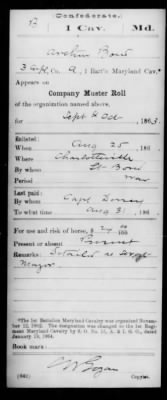 Confederate.
B 1 Cav. Md.
Archer Bond
3 Corp, Co. A, 1 Batt'n Maryland Cav.*
Appears on
Company Muster Roll
of the organization named above,
for Sept & Oct, 1863.
Enlisted:
When Aug 25, 186
Where Charlottesville
By whom Lt Bond
Period war
Last paid:
By whom Capt Dorsey
To what time Aug 31, 186
For use and risk of horse, $ 24 00/100
Present or absent Present
Remarks: Detailed as Sergt
Major
*The 1st Battalion Maryland Cavalry was organized November
12, 1862. The designation was changed to the 1st Regiment
Maryland Cavalry by S. O. No. 15, A. & I. G. O., dated
January 19, 1864.
Book mark:
(642) Copyist.